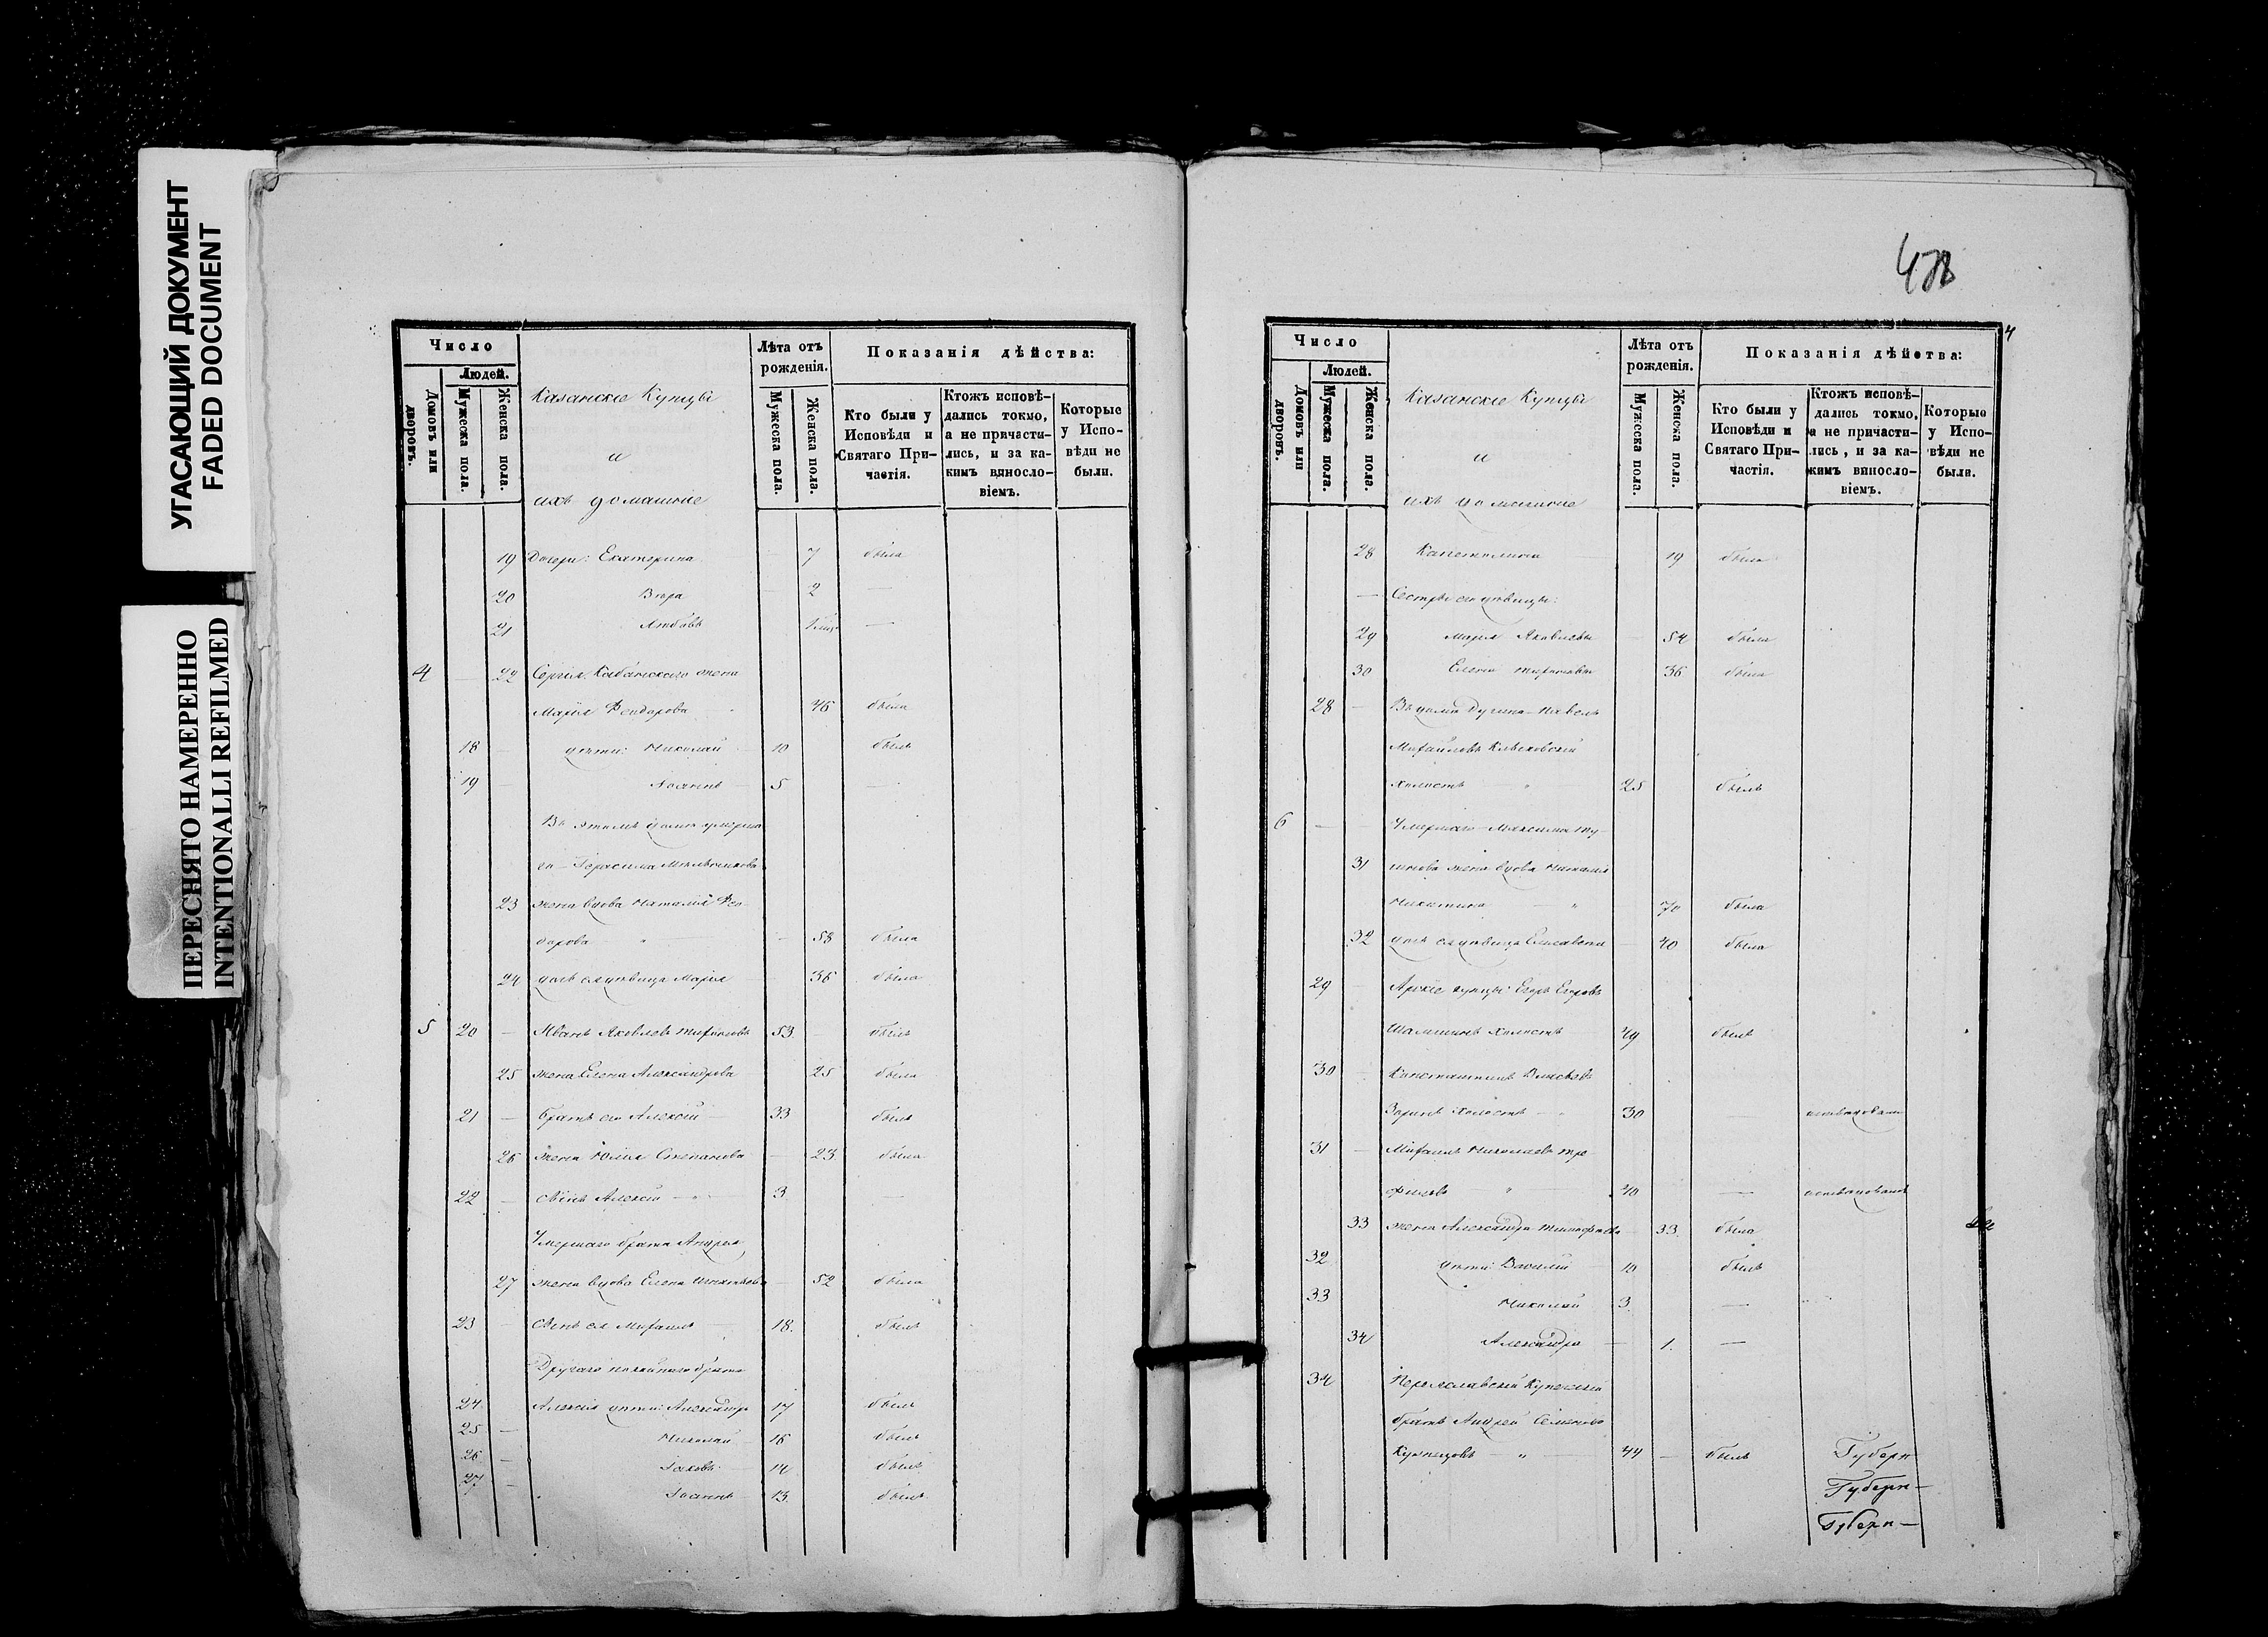 УГАСАЮЩИЙ ДОКУМЕНТ
FADED DOCUMENT
ПЕРЕСНЯТО НАМЕРЕННО
INTENTIONALLI REFILMED
Число
Людей.
Домовъ или дворовъ.
Мужеска пола.
Женска пола.
Казанскіе Купцы
и
ихъ домашніе
Лѣта отъ рожденія.
Мужеска пола.
Женска пола.
Показанія дѣйства:
Кто были у Исповѣди и Святаго Причастія.
Ктожъ исповѣдались токмо, а не причастились, и за какимъ винословіемъ.
Которые у Исповѣди не были.
19 Дочери: Екатерина 7 была
20 Вѣра 2 —
21 Любовь 1 —
4 — 22 Сергія жена
Марія Феодорова 46 была
18 — дѣти: Николай 10 былъ
19 — Іоаннъ 5 —
Въ этомъ домѣ умерша-
го Герасима
23 жена вдова Наталія Фео-
дорова — 58 была
24 дочь ея дѣвица Марія — 36 была
5 20 — Иванъ Яковлевъ 53 — былъ
25 жена Елена Александрова 25 была
21 — братъ его Алексѣй 33 былъ
26 жена Юлія Степанова — 23 была
22 — сынъ Алексѣй 3 —
Умершаго брата Андрея
27 жена вдова Елена — 52 была
23 — сынъ ея Михаилъ 18. былъ
Другаго покойнаго брата
24 Алексія дѣти: Александръ 17 былъ
25 — Николай 16 былъ
26 — Іаковъ 14 былъ
27 — Іоаннъ 13. былъ
4
Число
Людей.
Домовъ или дворовъ.
Мужеска пола.
Женска пола.
Казанскіе Купцы
и
ихъ домашніе
Лѣта отъ рожденія.
Мужеска пола.
Женска пола.
Показанія дѣйства:
Кто были у Исповѣди и Святаго Причастія.
Ктожъ исповѣдались токмо, а не причастились, и за какимъ винословіемъ.
Которые у Исповѣди не были.
28 Капетолина 19 была
— Сестры его дѣвицы:
29 Марія Яковлева — 54 была
30 Елена — 36 была
28 — Въ домѣ Павелъ
Михайловъ
Холостъ — " — 25 былъ
6 — — Умершаго Максима
31 жена вдова Наталія
Никитина — " 70 была
32 дочь ея дѣвица Елисавета — 40 была
29 — купцы: Егоръ Егоровъ
холостъ 49 былъ
30 — Константинъ
холостъ — " 30 — исповѣдовался
31 — Михаилъ Николаевъ Тро-
фимовъ " 40 — исповѣдовался
33 жена Александра — 33. была
32 дѣти: Василій — 10 былъ
33 Николай 3. —
34 Александра — 1. —
34 Переяславскій Купеческій
братъ Андрей Семеновъ
Кузнецовъ — " — 44 — былъ
Губерн
Губерн—
Губерн—